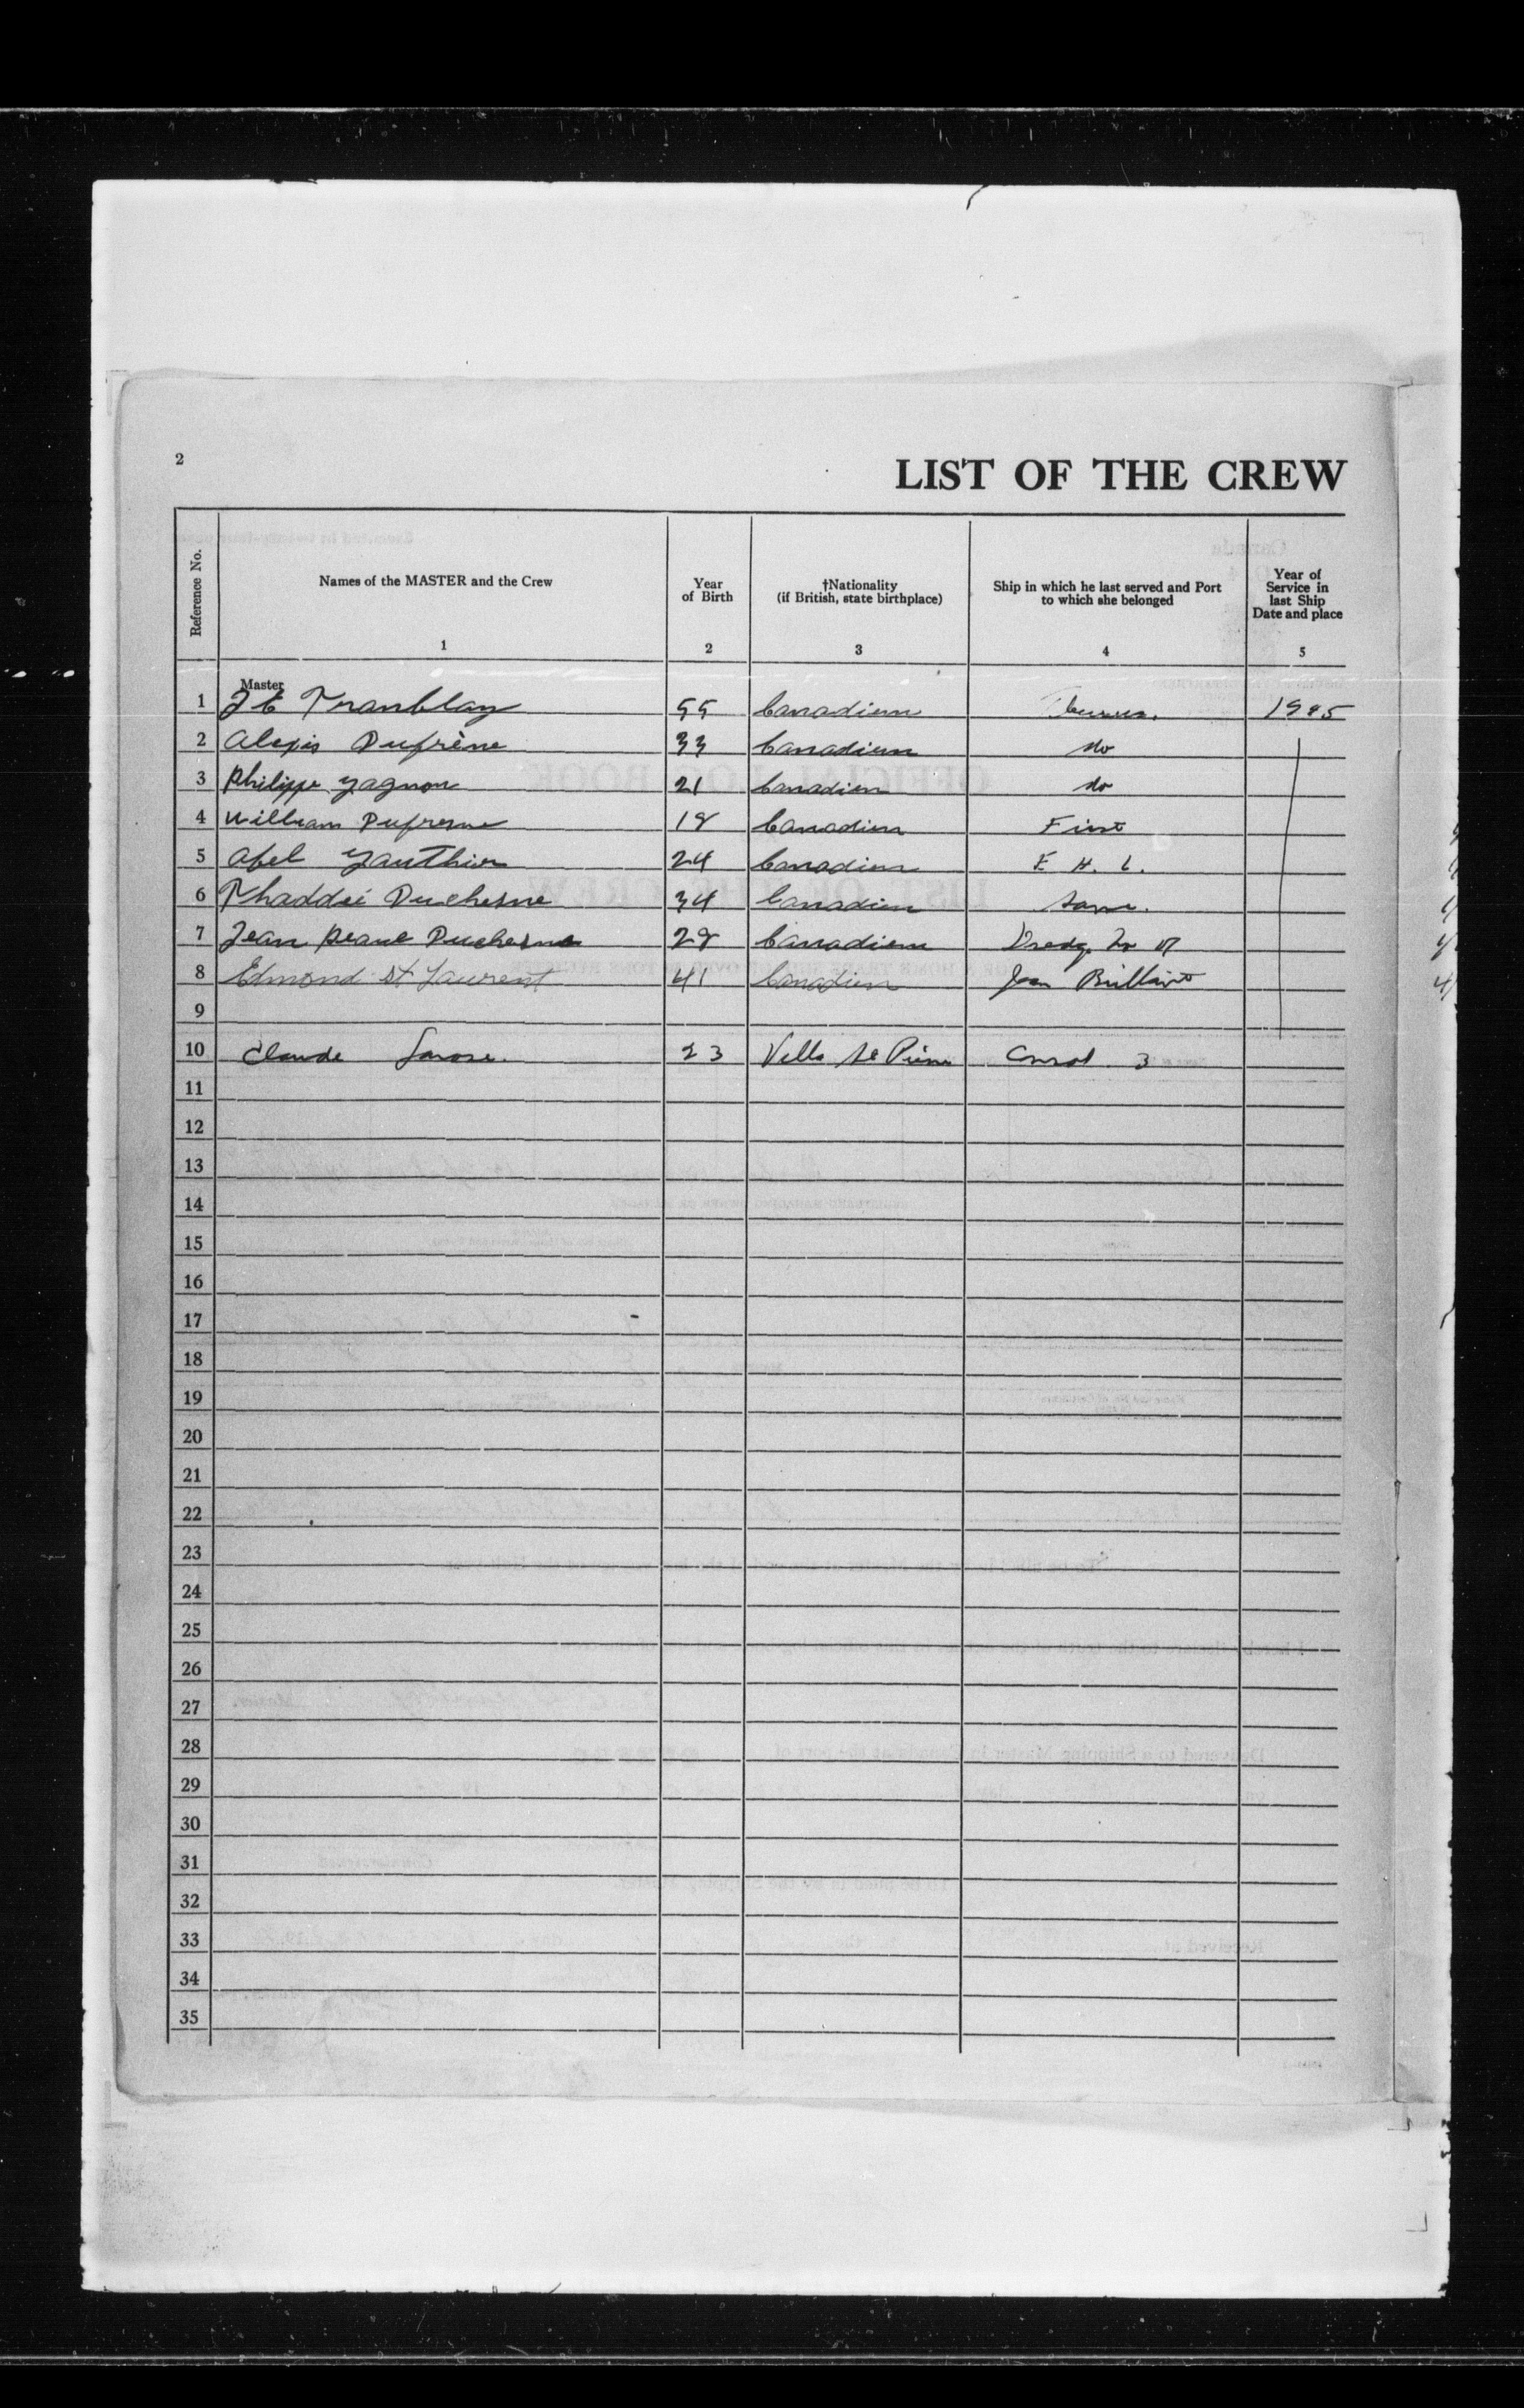 2
LIST OF THE CREW
Reference No.
Names of the MASTER and the Crew
1
Year
of Birth
2
†Nationality
(if British, state birthplace)
3
Ship in which he last served and Port
to which she belonged
4
Year of
Service in
last Ship
Date and place
5
Master
1 J E Tranblay 55 Canadien 1945
2 Alexis Dufrène 33 Canadien do
3 Philippe Gagnon 21 Canadien do
4 William Dufresne 18 Canadien First
5 Abel Gauthier 24 Canadien E H. L.
6 Thaddée Duchesne 34 Canadien Same.
7 Jean Duchesne 28 Canadien Dredg. No 17
8 Edmond St Laurent 41 Canadien Jean Brillant
9
10 Claude 23 Ville St Pierre 3
11
12
13
14
15
16
17
18
19
20
21
22
23
24
25
26
27
28
29
30
31
32
33
34
35